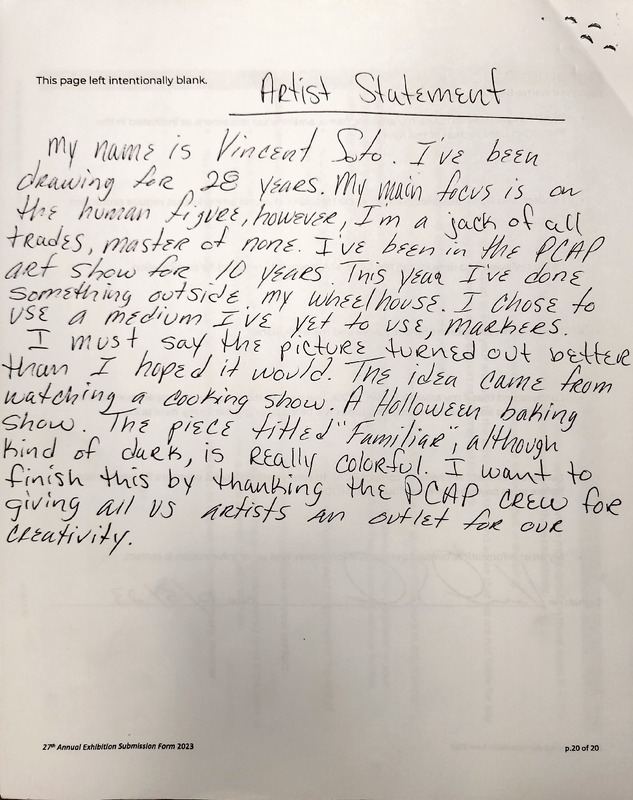 This page left intentionally blank.
Artist Statement
My name is Vincent Soto. I've been
drawing for 28 years. My main focus is on
the human figure, however, I'm a jack of all
trades, master of none. I've been in the PCAP
art show for 10 years. This year I've done
something outside my wheelhouse. I chose to
use a medium I've yet to use, markers.
I must say the picture turned out better
than I hoped it would. The idea came from
watching a cooking show. A Halloween baking
show. The piece titled "Familiar", although
kind of dark, is really colorful. I want to
finish this by thanking the PCAP crew for
giving all us artists an outlet for our
creativity.
27th Annual Exhibition Submission Form 2023
p.20 of 20